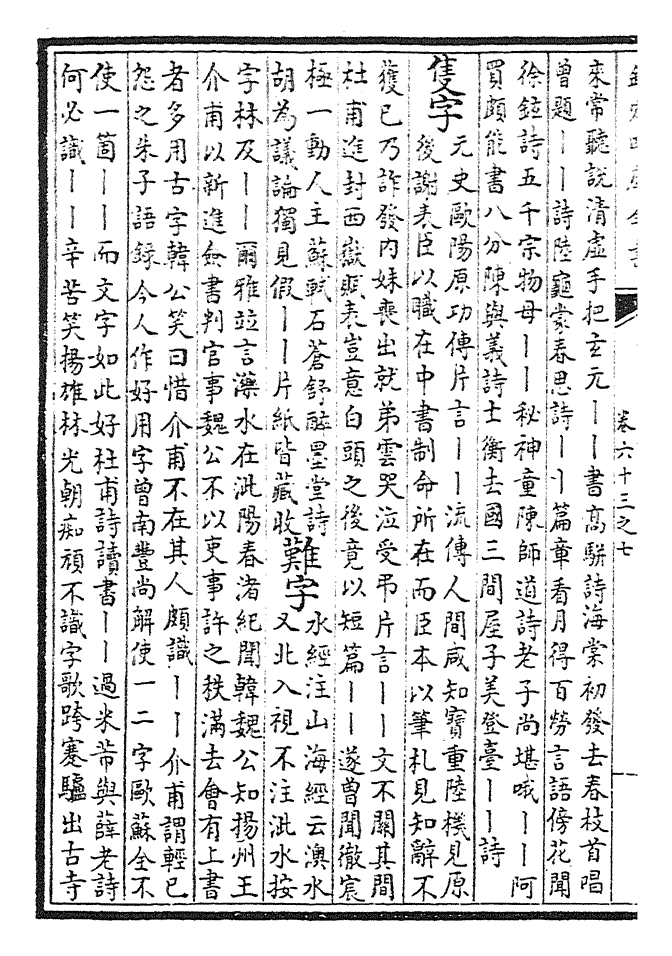 欽定四庫全書
卷六十三之七
來常聽説清虛手把玄元丨丨書高駢詩海棠初發去春枝首唱
曾題丨丨詩陸龜蒙春思詩丨丨篇章看月得百勞言語傍花聞
徐鉉詩五千宗物母丨丨秘神童陳師道詩老子尚堪哦丨丨阿
買頗能書八分陳與義詩士衡去國三間屋子美登臺丨丨詩
隻字
元史歐陽原功傳片言丨丨流傳人間咸知寶重陸機見原
後謝表臣以職在中書制命所在而臣本以筆札見知辭不
獲已乃詐發内妹喪出就弟雲哭泣受弔片言丨丨文不關其間
杜甫進封西嶽賦表豈意白頭之後竟以短篇丨丨遂曾聞徹宸
極一動人主蘇軾石蒼舒醉墨堂詩
胡為議論獨見假丨丨片紙皆藏收
難字
水經注山海經云澳水
又北入視不注泚水按
字林及丨丨爾雅竝言藥水在泚陽春渚紀聞韓魏公知揚州王
介甫以新進僉書判官事魏公不以吏事許之秩滿去會有上書
者多用古字韓公笑曰惜介甫不在其人頗識丨丨介甫謂輕已
怨之朱子語録今人作好用字曾南豐尚解使一二字歐蘇全不
使一箇丨丨而文字如此好杜甫詩讀書丨丨過米芾與薛老詩
何必識丨丨辛苦笑揚雄林光朝痴頑不識字歌跨蹇驢出古寺